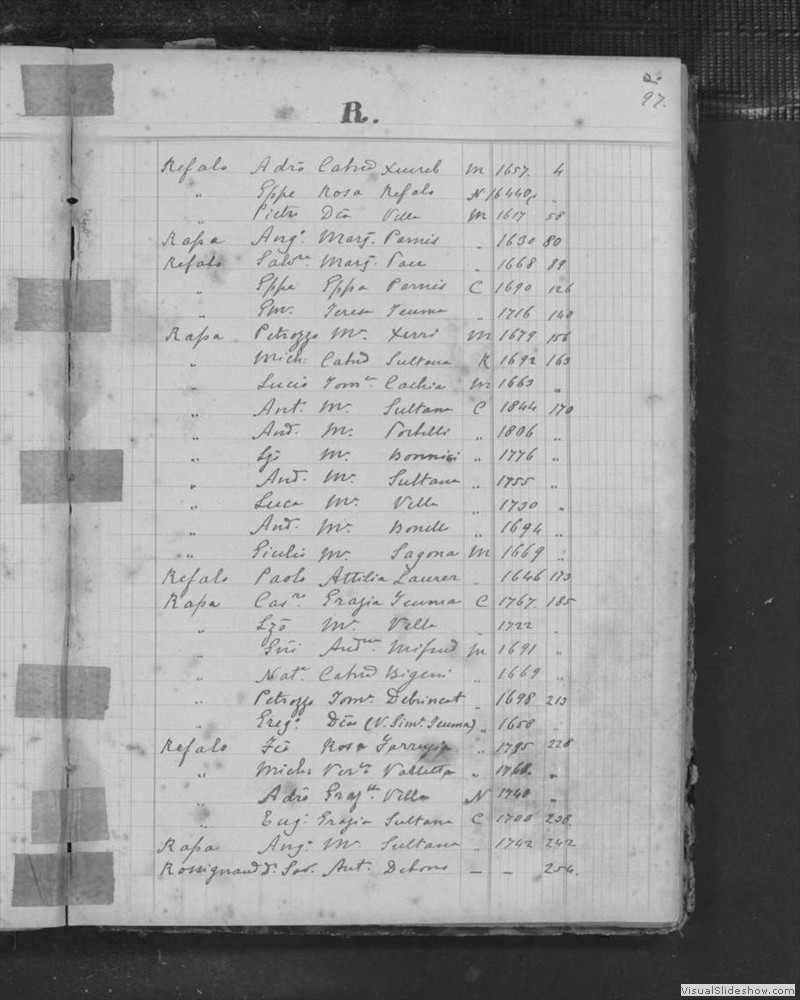 R.
97.
Refalo Adrō Catnd Xuereb M 1657. 4
" Gppe Rosa Refalo N 1644 "
" Pietro Dca Vella M 1617 58
Rapa Angº Margª. Pernis " 1630 80
Refalo Salvre Margª. Pace " 1668 89
" Gppe Gppa Pernis C 1690 126
" Gmº. Teresa Teuma " 1716 140
Rapa Petruzzo Mª. Xerri M 1679 156
" Mich: Catnd Sultana R 1692 163
" Lucio Cachia M 1663 "
" Ant. Mª. Sultana C 1844 170
" And. Mª. Portelli " 1806 "
" Mª. Bonnici " 1776 "
" And. Mª. Sultana " 1755 "
" Luca Mª. Vella " 1730 "
" And. Mª. Bonelli " 1694 "
" Giulio Mª. Sagona M 1669 "
Refalo Paolo Attilia Laurer " 1646 173
Rapa Casre. Grazia Teuma C 1767. 185
" Lzō Mª. Vella " 1722 "
" Mifsud M 1691 "
" Natle Catnd Bigeni " 1669 "
" Petruzzo Debrincat " 1698 213
" Gregº. Dca (V. Simº. Teuma) " 1658 "
Refalo Fcō Rosa Farrugia " 1795 228
" Michi Valletta " 1768. "
" Adrō Grazlla Vella N 1740 "
" Eugº. Grazia Sultana C 1700 238
Rapa Angº. Mª. Sultana " 1742 242
Rossignaud Dr. Sal. Ant. Debono – – 254.
VisualSlideshow.com